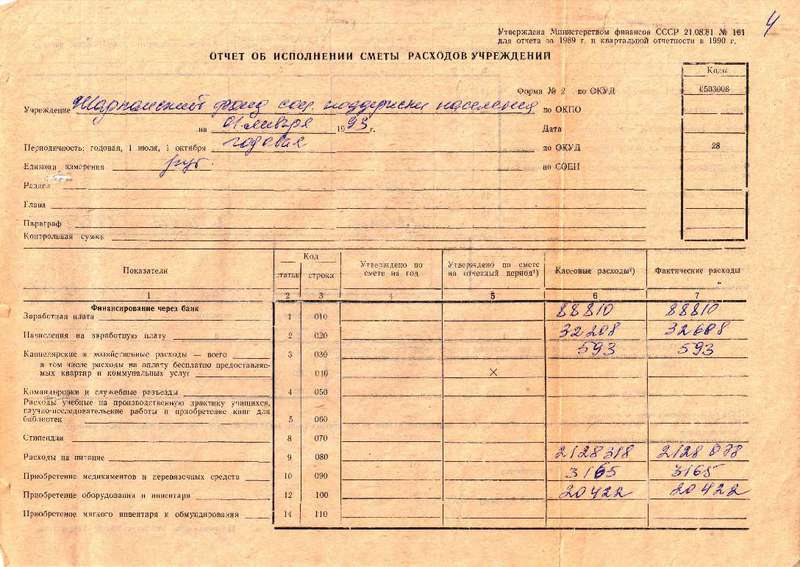 4
Утверждена Министерством финансов СССР 21.08.81 № 161
для отчета за 1989 г. и квартальной отчетности в 1990 г.
ОТЧЕТ ОБ ИСПОЛНЕНИИ СМЕТЫ РАСХОДОВ УЧРЕЖДЕНИЙ
Коды
Форма № 2 по ОКУД 0503008
Учреждение фонд соц. поддержки населения по ОКПО
на 01 января 1993 г. Дата
Периодичность: годовая, 1 июля, 1 октября годовая по ОКУД 28
Единица измерения руб. по СОЕИ
Раздел
Глава
Параграф
Контрольная сумма
Показатели Код Утверждено по смете на год Утверждено по смете на отчетный период¹) Кассовые расходы¹) Фактические расходы
статьи строка
1 2 3 4 5 6 7
Финансирование через банк
Заработная плата 1 010 88810 88810
Начисления на заработную плату 2 020 32208 32608
Канцелярские и хозяйственные расходы — всего 3 030 593 593
в том числе расходы на оплату бесплатно предоставляе-
мых квартир и коммунальных услуг 040 ×
Командировки и служебные разъезды 4 050
Расходы учебные на производственную практику учащихся,
научно-исследовательские работы и приобретение книг для
библиотек 5 060
Стипендии 8 070
Расходы на питание 9 080 2128318
Приобретение медикаментов и перевязочных средств 10 090 3165 3165
Приобретение оборудования и инвентаря 12 100 20422 20422
Приобретение мягкого инвентаря и обмундирования 14 110